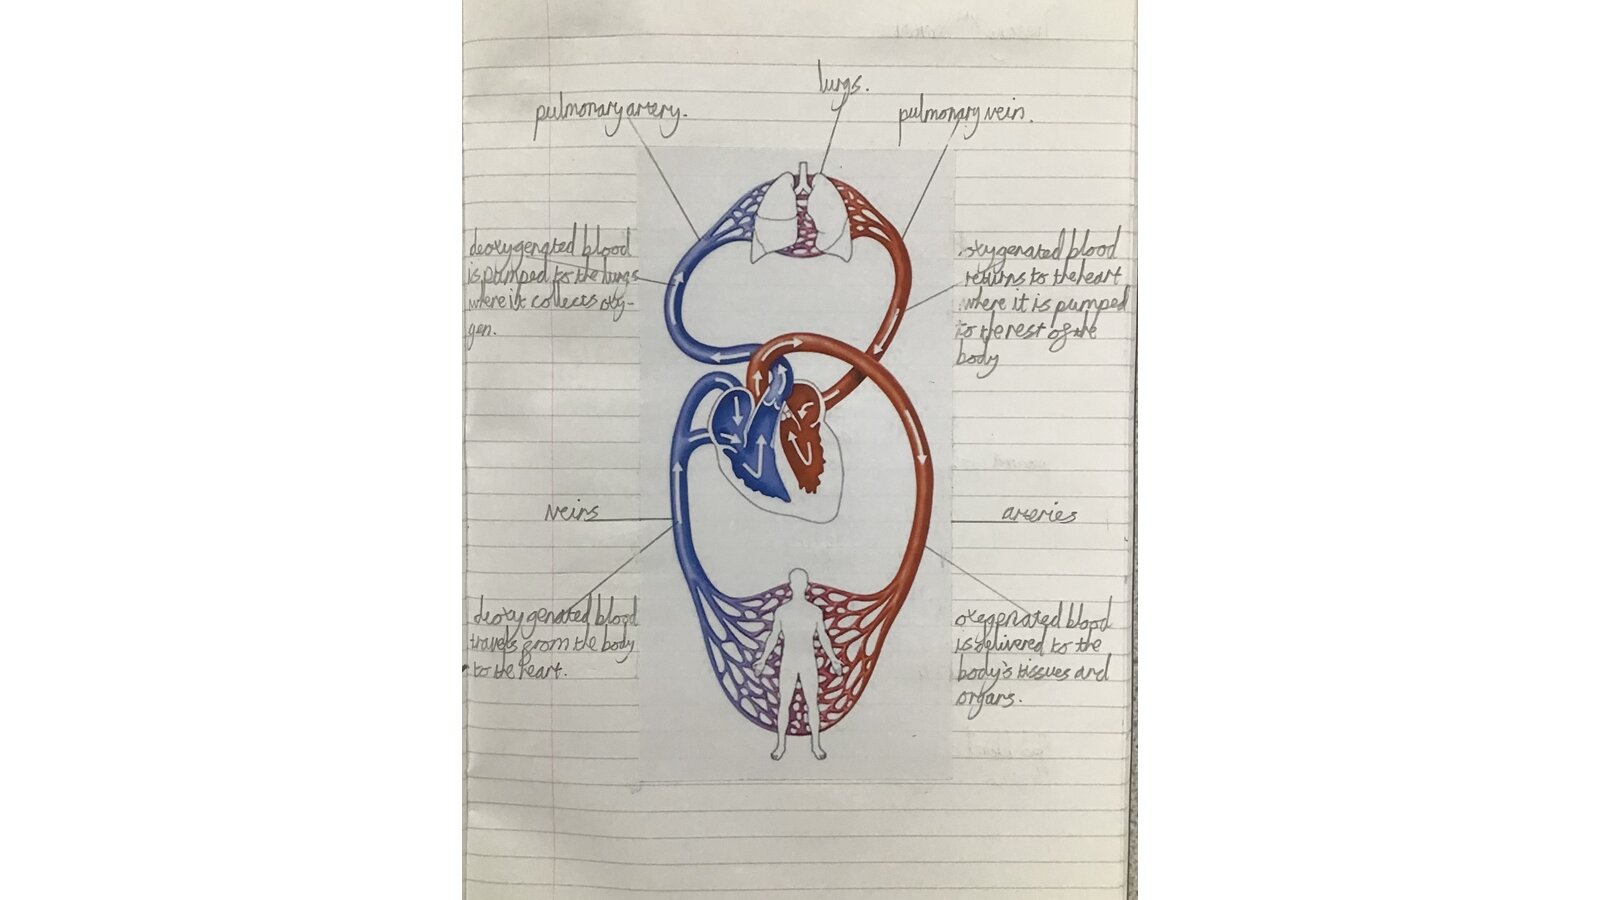 lungs.
pulmonary artery.
pulmonary vein.
deoxygenated blood
is pumped to the lungs
where it collects oxy-
gen.
oxygenated blood
returns to the heart
where it is pumped
to the rest of the
body
veins
arteries
deoxygenated blood
travels from the body
to the heart.
oxegenated blood
is delivered to the
body's tissues and
organs.